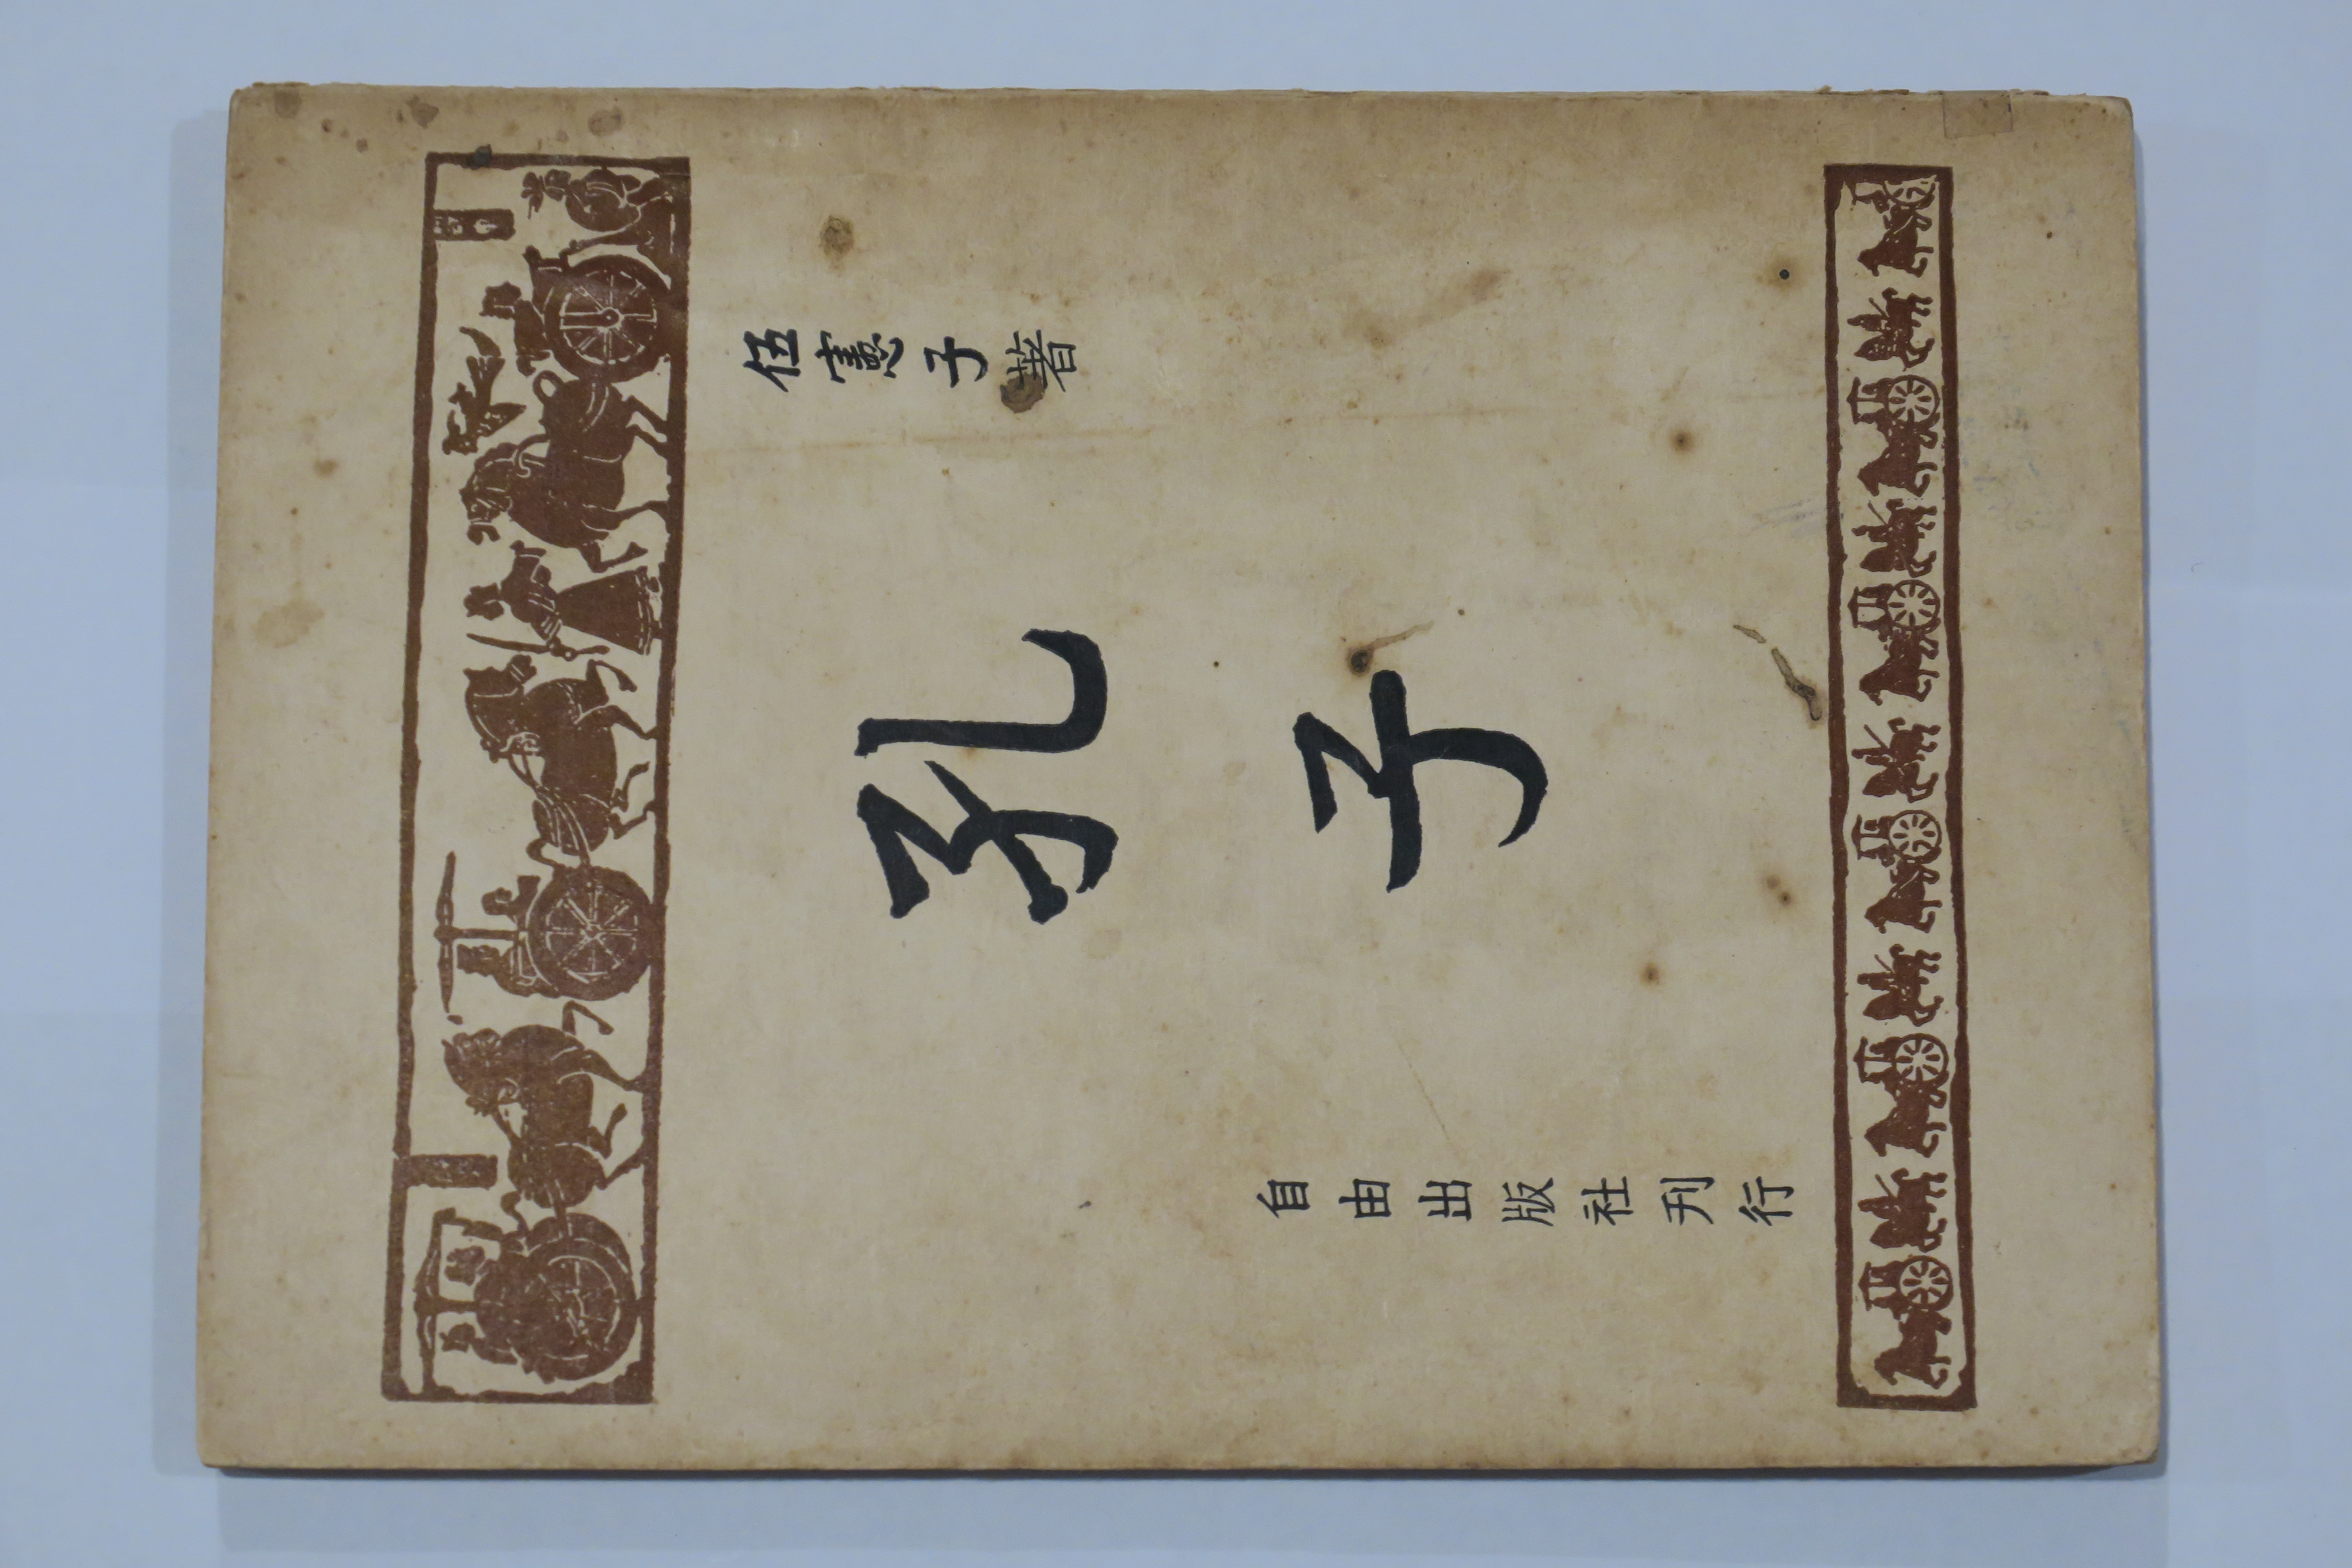 伍憲子著
孔子
自由出版社刋行